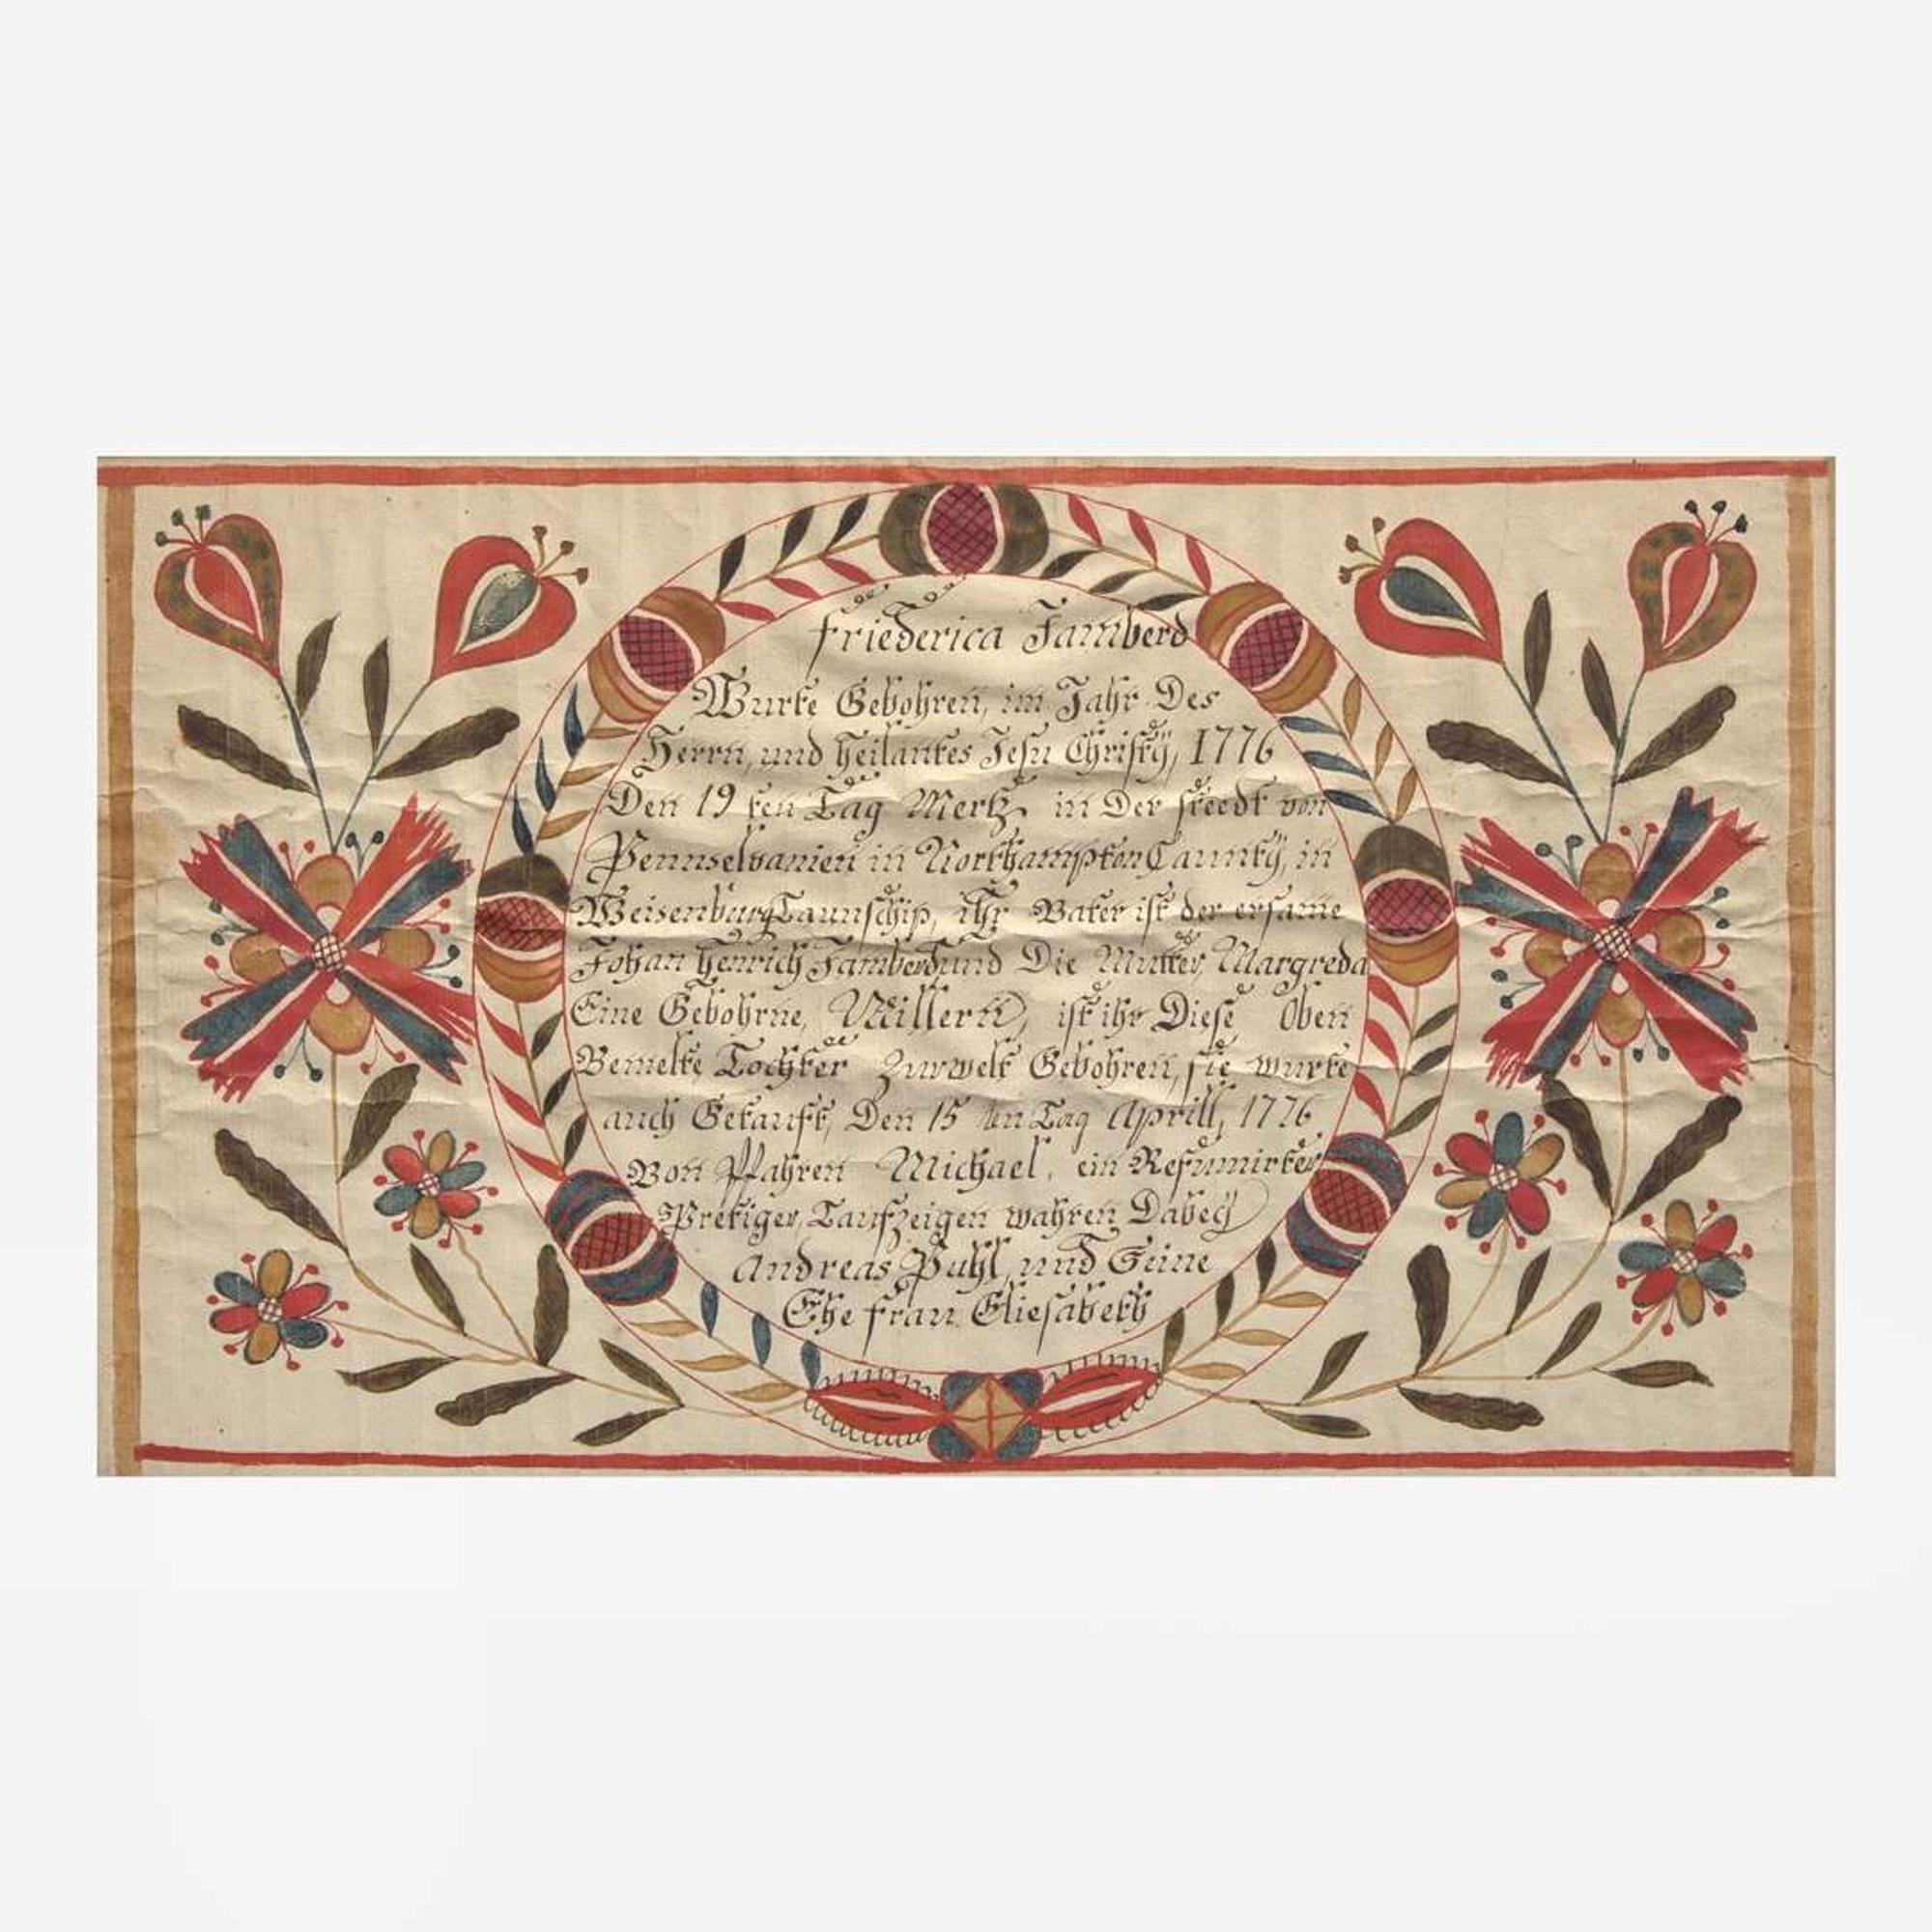 Friederica Jamberd
Wurte Gebohren, im Jahr Des
Herrn, und Heilantes Jesu Christÿ, 1776
Den 19 ten Tag Mertz, in Der steedt von
Pennselvanien in Northampton Caunty, in
Weisenburg Taunschip, ihr Vater ist der ersame
Johan Henrich Jamberd und Die Mutter, Margreda
Eine Gebohrne, Millern, ist ihr Diese Oben
Bemelte, Tochter Zur welt Gebohren, sie wurte
auch Getauft, Den 15 ten Tag Aprill, 1776
Von Pfahren Michael, ein Refumirter
Pretiger, Taufzeigen wahren Dabey
Andreas Puhl, und Seine
Ehe frau Eliesabeth